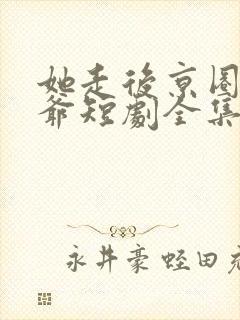 她走後京圈
爺短劇全集
永井豪 蛭田充